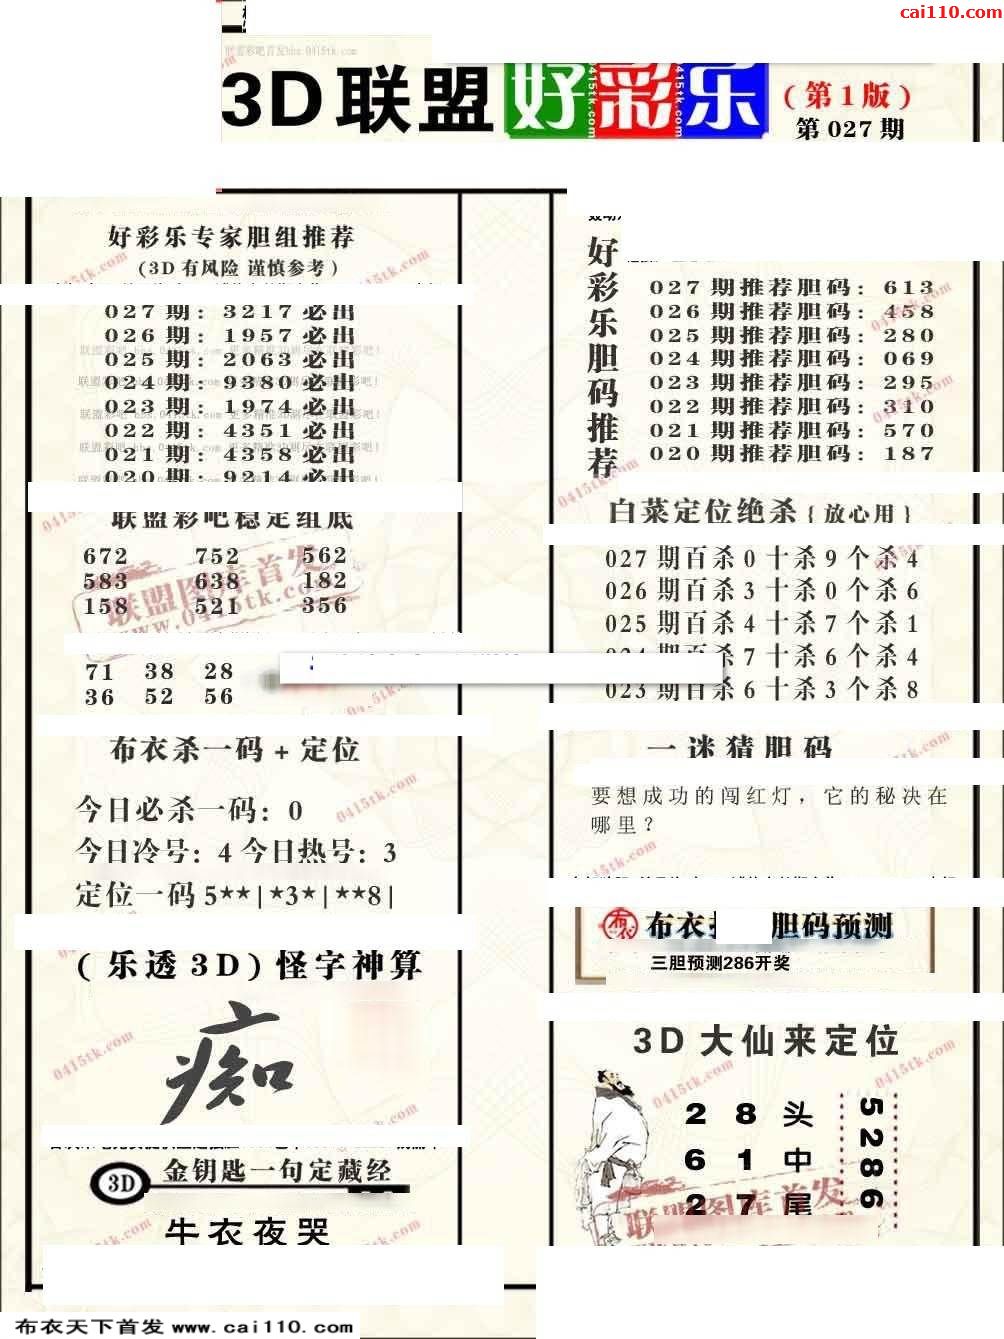 cai110.com
联盟彩吧首发bbs.0415tk.com
3D联盟好彩乐
(第1版)
第027期
好彩乐专家胆组推荐
(3D有风险 谨慎参考)
027期: 3217必出
026期: 1957必出
025期: 2063必出
024期: 9380必出
023期: 1974必出
022期: 4351必出
021期: 4358必出
020期: 9214必出
联盟彩吧稳定组底
672 752 562
583 638 182
158 521 356
联盟图库首发
www.0415tk.com
71 38 28
36 52 56
布衣杀一码+定位
今日必杀一码: 0
今日冷号: 4 今日热号: 3
定位一码 5**|*3*|**8|
(乐透3D)怪字神算
痴
3D 金钥匙一句定藏经
牛衣夜哭
好彩乐胆码推荐
027期推荐胆码: 613
026期推荐胆码: 458
025期推荐胆码: 280
024期推荐胆码: 069
023期推荐胆码: 295
022期推荐胆码: 310
021期推荐胆码: 570
020期推荐胆码: 187
白菜定位绝杀{放心用}
027期百杀0十杀9个杀4
026期百杀3十杀0个杀6
025期百杀4十杀7个杀1
杀7十杀6个杀4
023期百杀6十杀3个杀8
一迷猜胆码
要想成功的闯红灯，它的秘决在
哪里？
布衣 胆码预测
三胆预测286开奖
3D大仙来定位
2 8 头
6 1 中
2 7 尾
5286
联盟图库首发
布衣天下首发 www.cai110.com